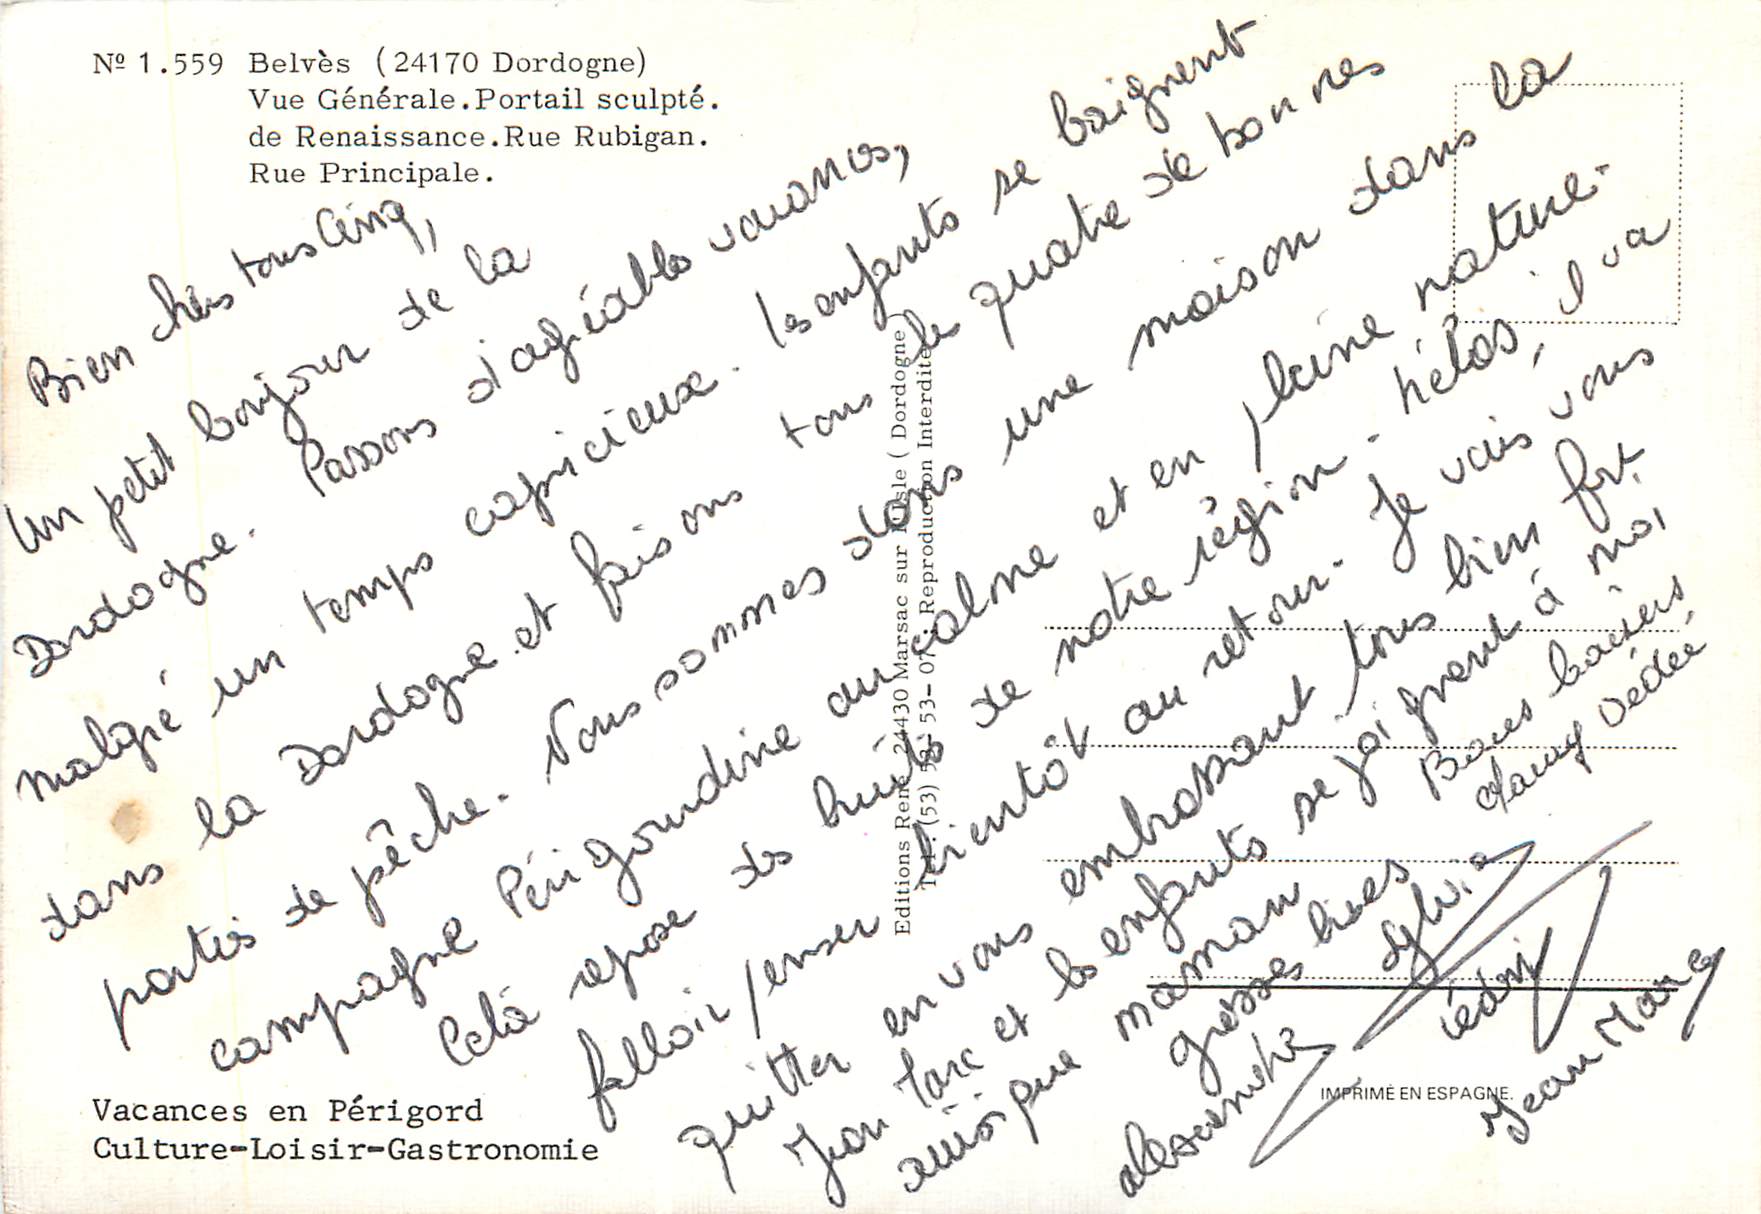 Nº 1.559 Belvès (24170 Dordogne)
Vue Générale.Portail sculpté.
de Renaissance.Rue Rubigan.
Rue Principale.
Bien chers tous Cinq,
Un petit bonjour de la
Dordogne. Passons d'agréables vacances,
malgré un temps capricieux. les enfants se baignent
dans la Dordogne et faisons tous les quatre de bonnes
parties de pêche. Nous sommes dans une maison dans la
campagne Périgourdine au calme et en pleine nature.
Celà repose des bruits de notre région. hélas, il va
falloir penser bientôt au retour. Je vais vous
quitter en vous embrassant tous bien fort.
Jean Marc et les enfants se joignent à moi
ainsi que maman
Bons baisers
Dédée
grosses bises
Sylvia
alexandre
Cédric
Jean Marc
Editions René 24430 Marsac sur l'Isle ( Dordogne )
Tel. (53) 53-53-07 Reproduction Interdite
Vacances en Périgord
Culture-Loisir-Gastronomie
IMPRIMÉ EN ESPAGNE.